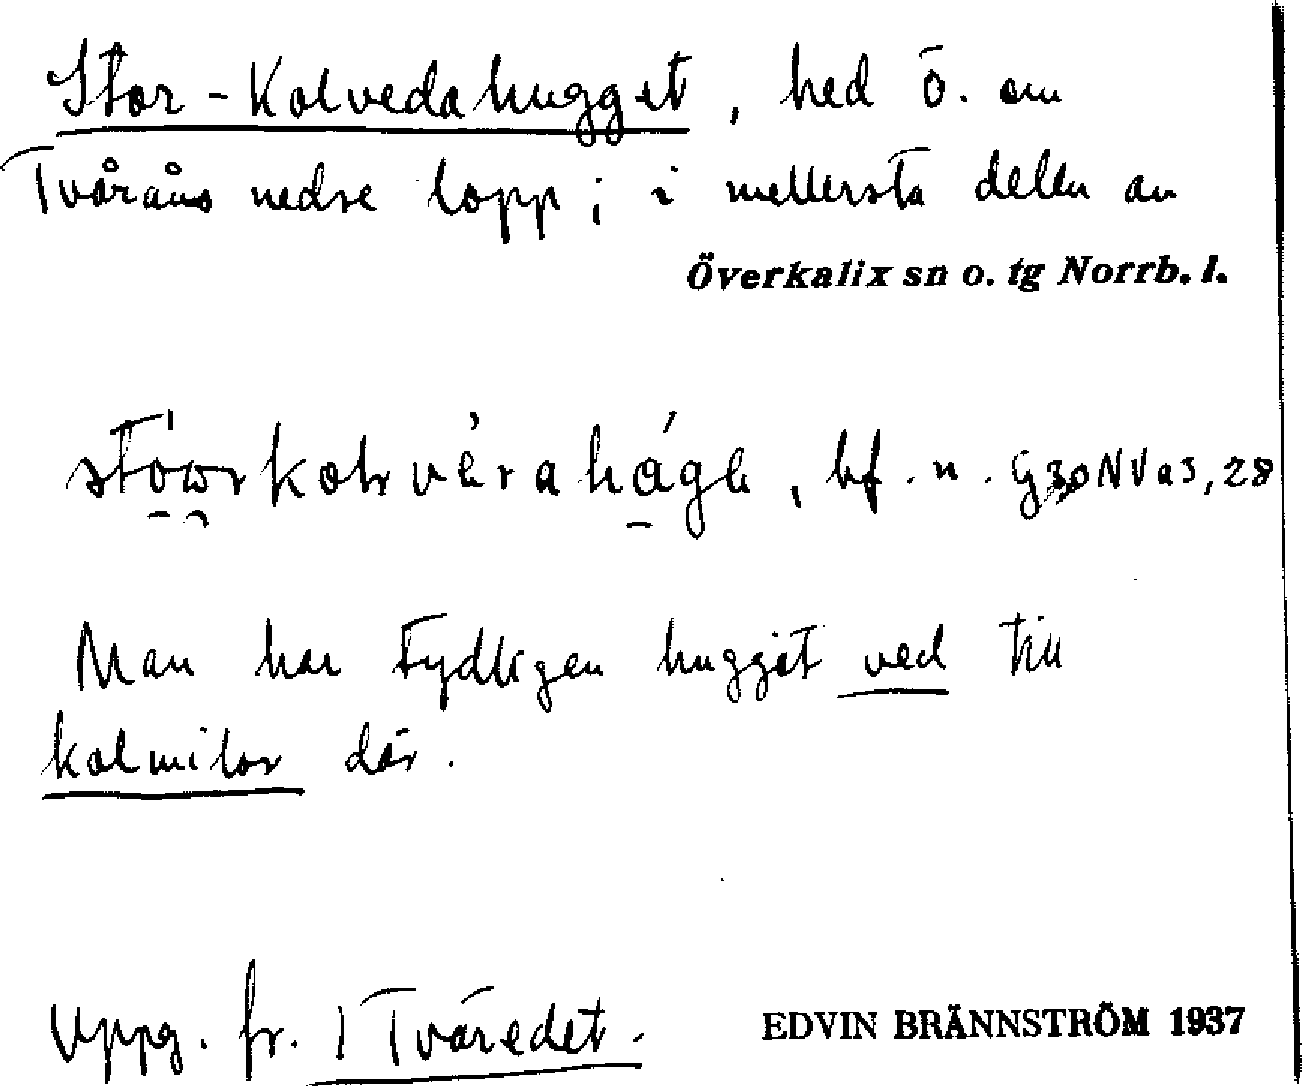 Stor-Kolvedahugget, hed ö. om
Tvåråns nedre lopp; i mellersta delen av
Överkalix sn o. tg Norrb. l.
bf. n. G30NVa3,28
Man har tydligen hugget ved till
kolmilor där.
Uppg. fr. Tväredet.
EDVIN BRÄNNSTRÖM 1937